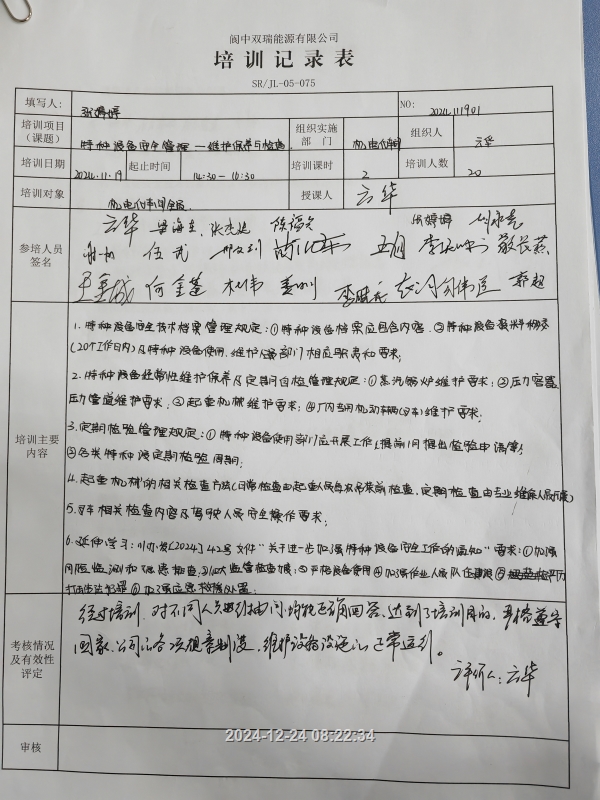 阆中双瑞能源有限公司
培训记录表
SR/JL-05-075
填写人： 张婷婷 NO: 2024111901
培训项目（课题） 特种设备安全管理—维护保养与检查 组织实施部门 机电仪 组织人 云华
培训日期 2024.11.19 起止时间 14:30-16:30 培训课时 2 培训人数 20
培训对象 机电仪车间全员 授课人 云华
参培人员签名
云华 张婷婷
伍武
何金莲 杜伟
培训主要内容
1. 特种设备安全技术档案管理规定：①特种设备档案应包含内容，②特种设备资料移交
（20个工作日内）及特种设备使用、维护保养部门相应职责和要求；
2. 特种设备经常性维护保养及定期自检管理规定：①蒸汽锅炉维护要求；②压力容器、
压力管道维护要求，③起重机械维护要求；④厂内专用机动车辆（叉车）维护要求；
3. 定期检验管理规定：①特种设备使用部门应开展工作（提前1月提出检验申请等）
②各类特种设定期检验周期；
4. 起重机械的相关检查方法（日常检查由起重人员每次吊装前检查，定期检查由专业维保人员开展）
5. 叉车相关检查内容及驾驶人员安全操作要求；
6. 延伸学习：川办发[2024]42号文件“关于进一步加强特种设备安全工作的通知”要求：①加强
风险监测和隐患排查，②加大监管检查力度；③严格设备使用④加强作业人员队伍建设⑤严厉
打击违法犯罪⑥加强应急救援处置；
考核情况及有效性评定
经过培训，对不同人员进行抽问，均能正确回答，达到了培训目的，严格遵守
国家、公司的各项规章制度，维护设备设施的正常运行。
评价人：云华
审核
2024-12-24 08:22:34